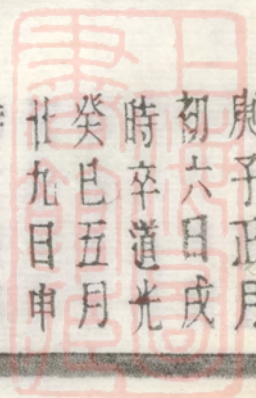 庚子正月
初六日戌
時卒道光
癸巳五月
廿九日申